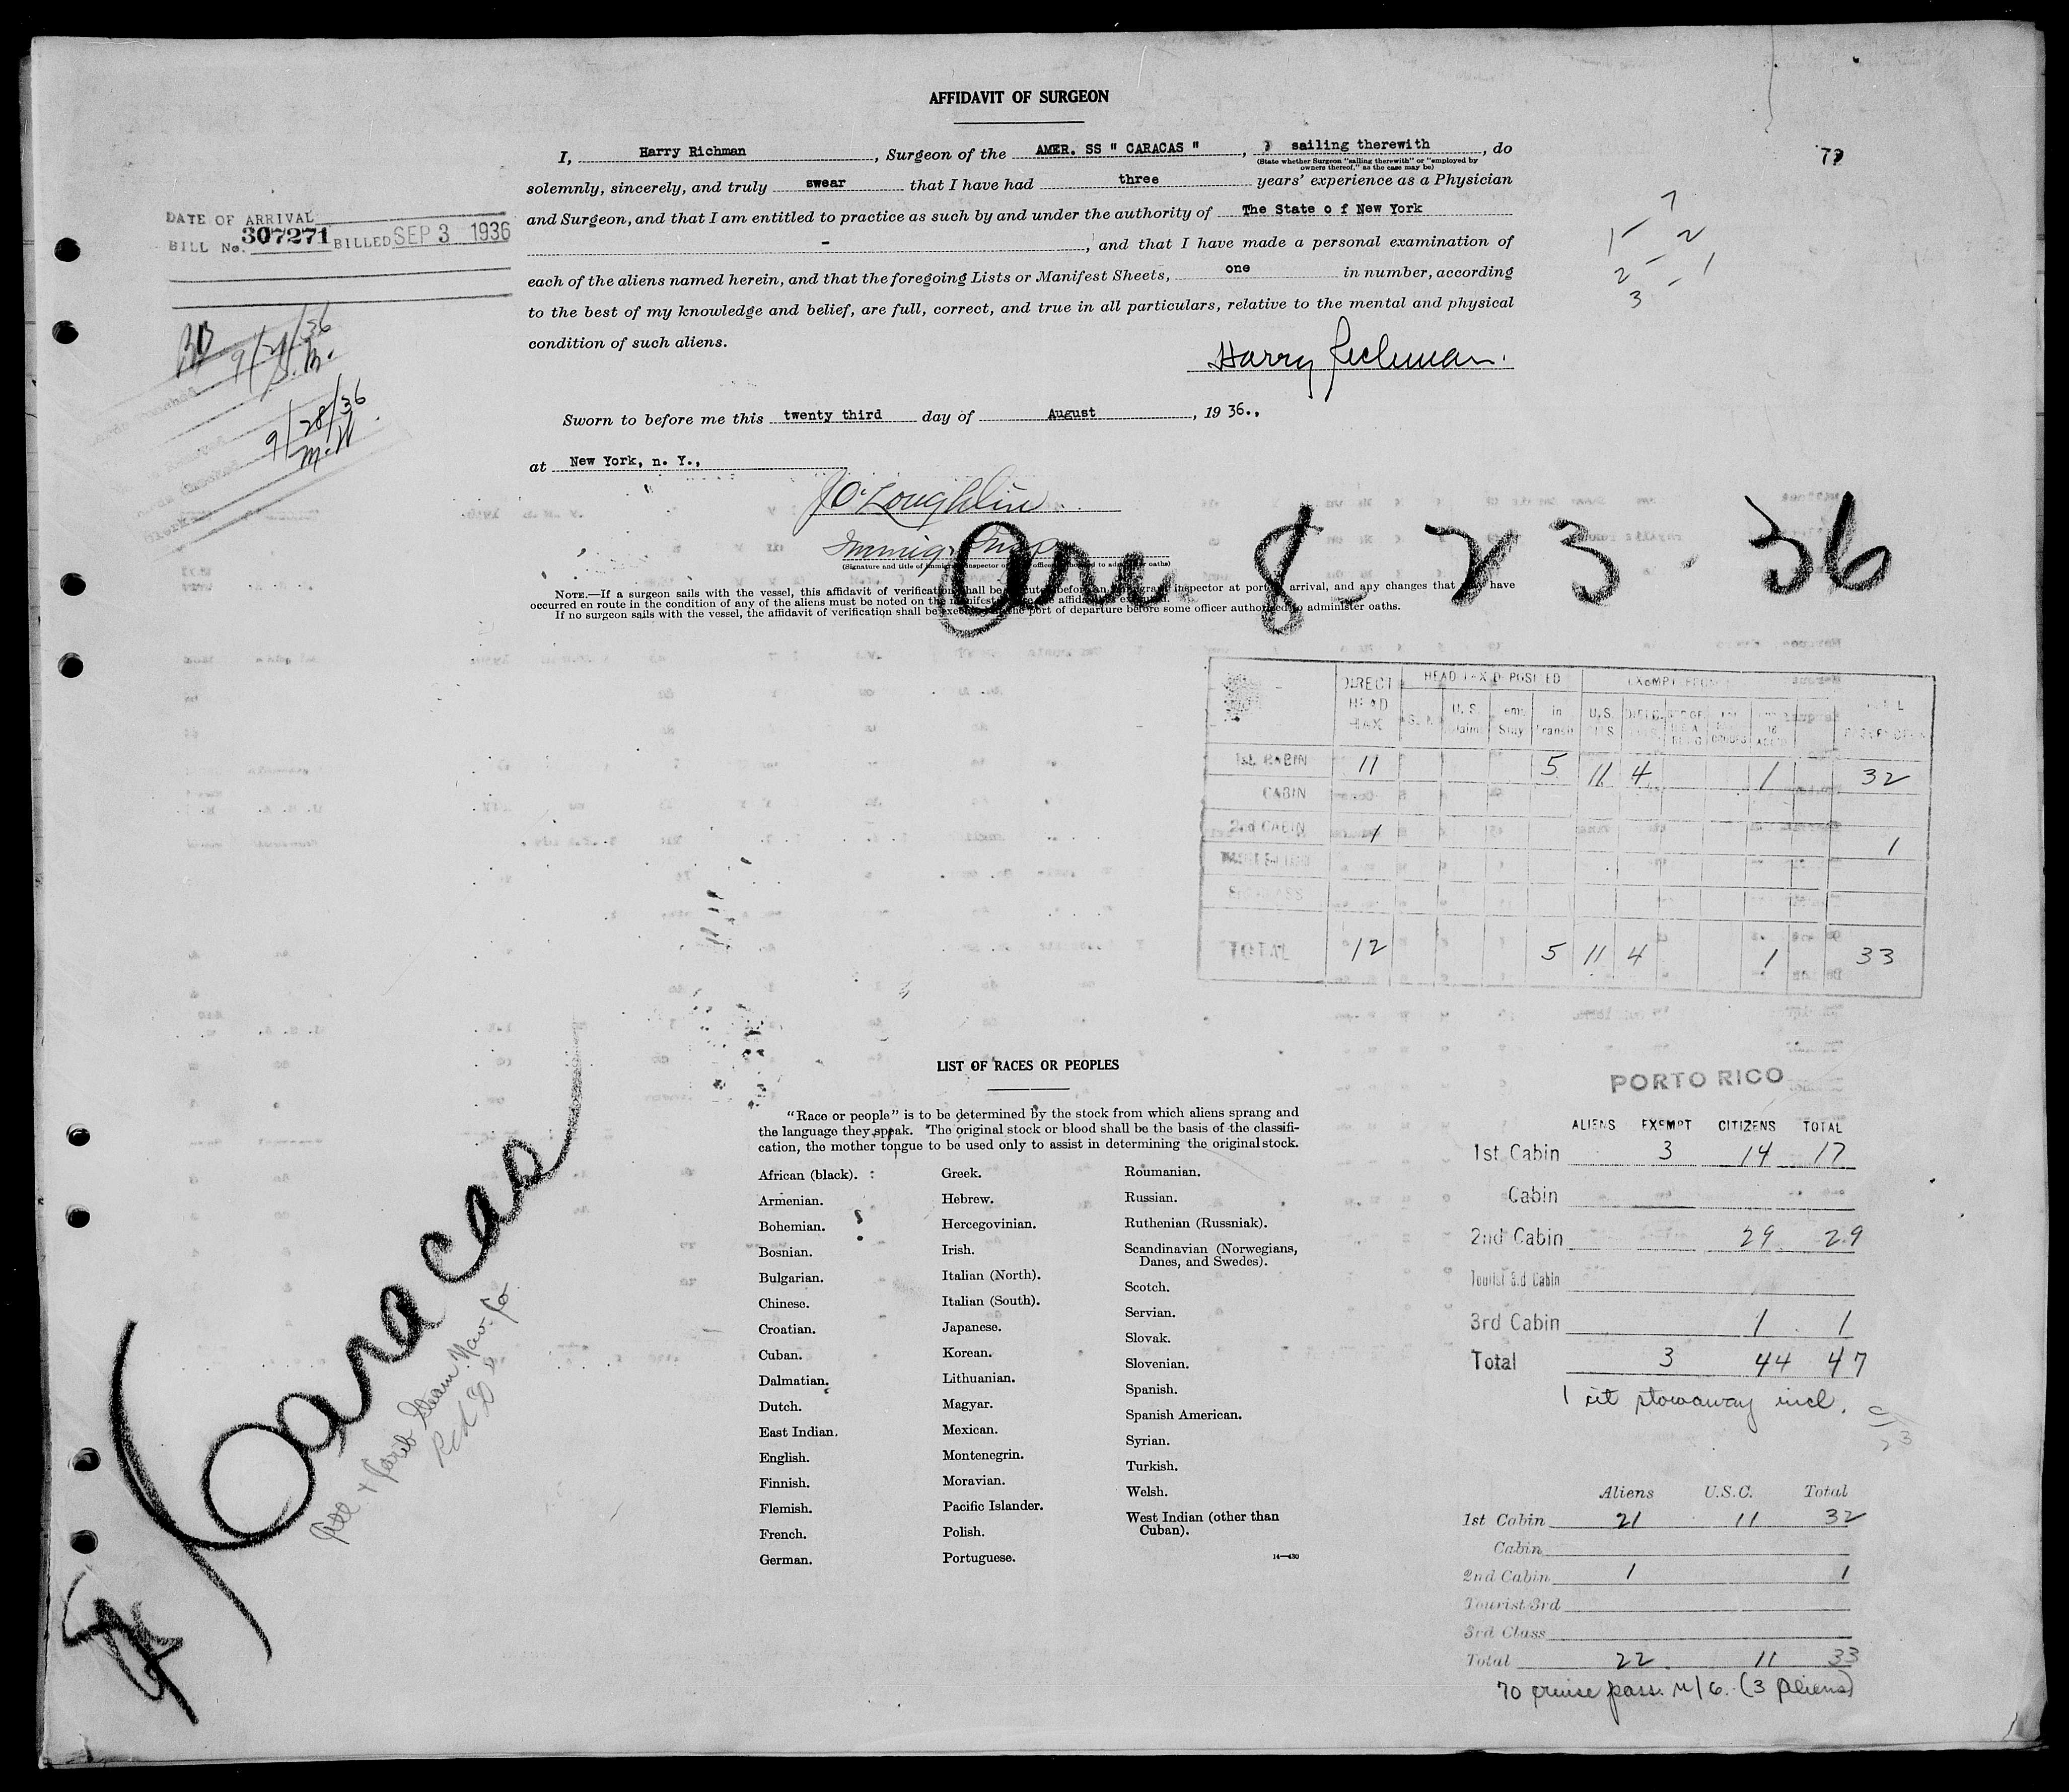 AFFIDAVIT OF SURGEON
I, Harry Richman, Surgeon of the AMER. SS " CARACAS ", sailing therewith, do
(State whether Surgeon "sailing therewith" or "employed by
owners thereof," as the case may be)
solemnly, sincerely, and truly swear that I have had three years' experience as a Physician
and Surgeon, and that I am entitled to practice as such by and under the authority of The State o f New York
-, and that I have made a personal examination of
each of the aliens named herein, and that the foregoing Lists or Manifest Sheets, one in number, according
to the best of my knowledge and belief, are full, correct, and true in all particulars, relative to the mental and physical
condition of such aliens.
Harry Richman.
Sworn to before me this twenty third day of August, 19 36.,
at New York, n. Y.,
J O'Loughlin
Immig. Insp
DATE OF ARRIVAL
BILL No. 307271 BILLED SEP 3 1936
9/21/36
9/28/36
McW
77
7
1 - 2
2 - 1
3 -
Arr 8-23-36
NOTE.—If a surgeon sails with the vessel, this affidavit of verification shall be executed before an immigrant inspector at port of arrival, and any changes that may have
occurred en route in the condition of any of the aliens must be noted on the manifest before the affidavit is executed.
If no surgeon sails with the vessel, the affidavit of verification shall be executed at the port of departure before some officer authorized to administer oaths.
DIRECT HEAD TAX HEAD TAX DEPOSITED EXEMPT FROM
U.S. Stay in Transit U.S.
1st CABIN 11 5 11 4 1 32
CABIN
2nd CABIN 1 1
TOTAL 12 5 11 4 1 33
LIST OF RACES OR PEOPLES
"Race or people" is to be determined by the stock from which aliens sprang and
the language they speak. The original stock or blood shall be the basis of the classifi-
cation, the mother tongue to be used only to assist in determining the original stock.
African (black).
Armenian.
Bohemian.
Bosnian.
Bulgarian.
Chinese.
Croatian.
Cuban.
Dalmatian.
Dutch.
East Indian.
English.
Finnish.
Flemish.
French.
German.
Greek.
Hebrew.
Hercegovinian.
Irish.
Italian (North).
Italian (South).
Japanese.
Korean.
Lithuanian.
Magyar.
Mexican.
Montenegrin.
Moravian.
Pacific Islander.
Polish.
Portuguese.
Roumanian.
Russian.
Ruthenian (Russniak).
Scandinavian (Norwegians,
Danes, and Swedes).
Scotch.
Servian.
Slovak.
Slovenian.
Spanish.
Spanish American.
Syrian.
Turkish.
Welsh.
West Indian (other than
Cuban).
14—430
PORTO RICO
ALIENS EXEMPT CITIZENS TOTAL
1st Cabin 3 14 17
Cabin
2nd Cabin 29 29
Tourist 3rd Cabin
3rd Cabin 1 1
Total 3 44 47
1 cit stowaway incl.
Aliens U.S.C. Total
1st Cabin 21 11 32
Cabin
2nd Cabin 1 1
Tourist 3rd
3rd Class
Total 22 11 33
70 cruise pass. (3 aliens)
Caracas
Atl & Carib Steam Nav. Co
Red "D"